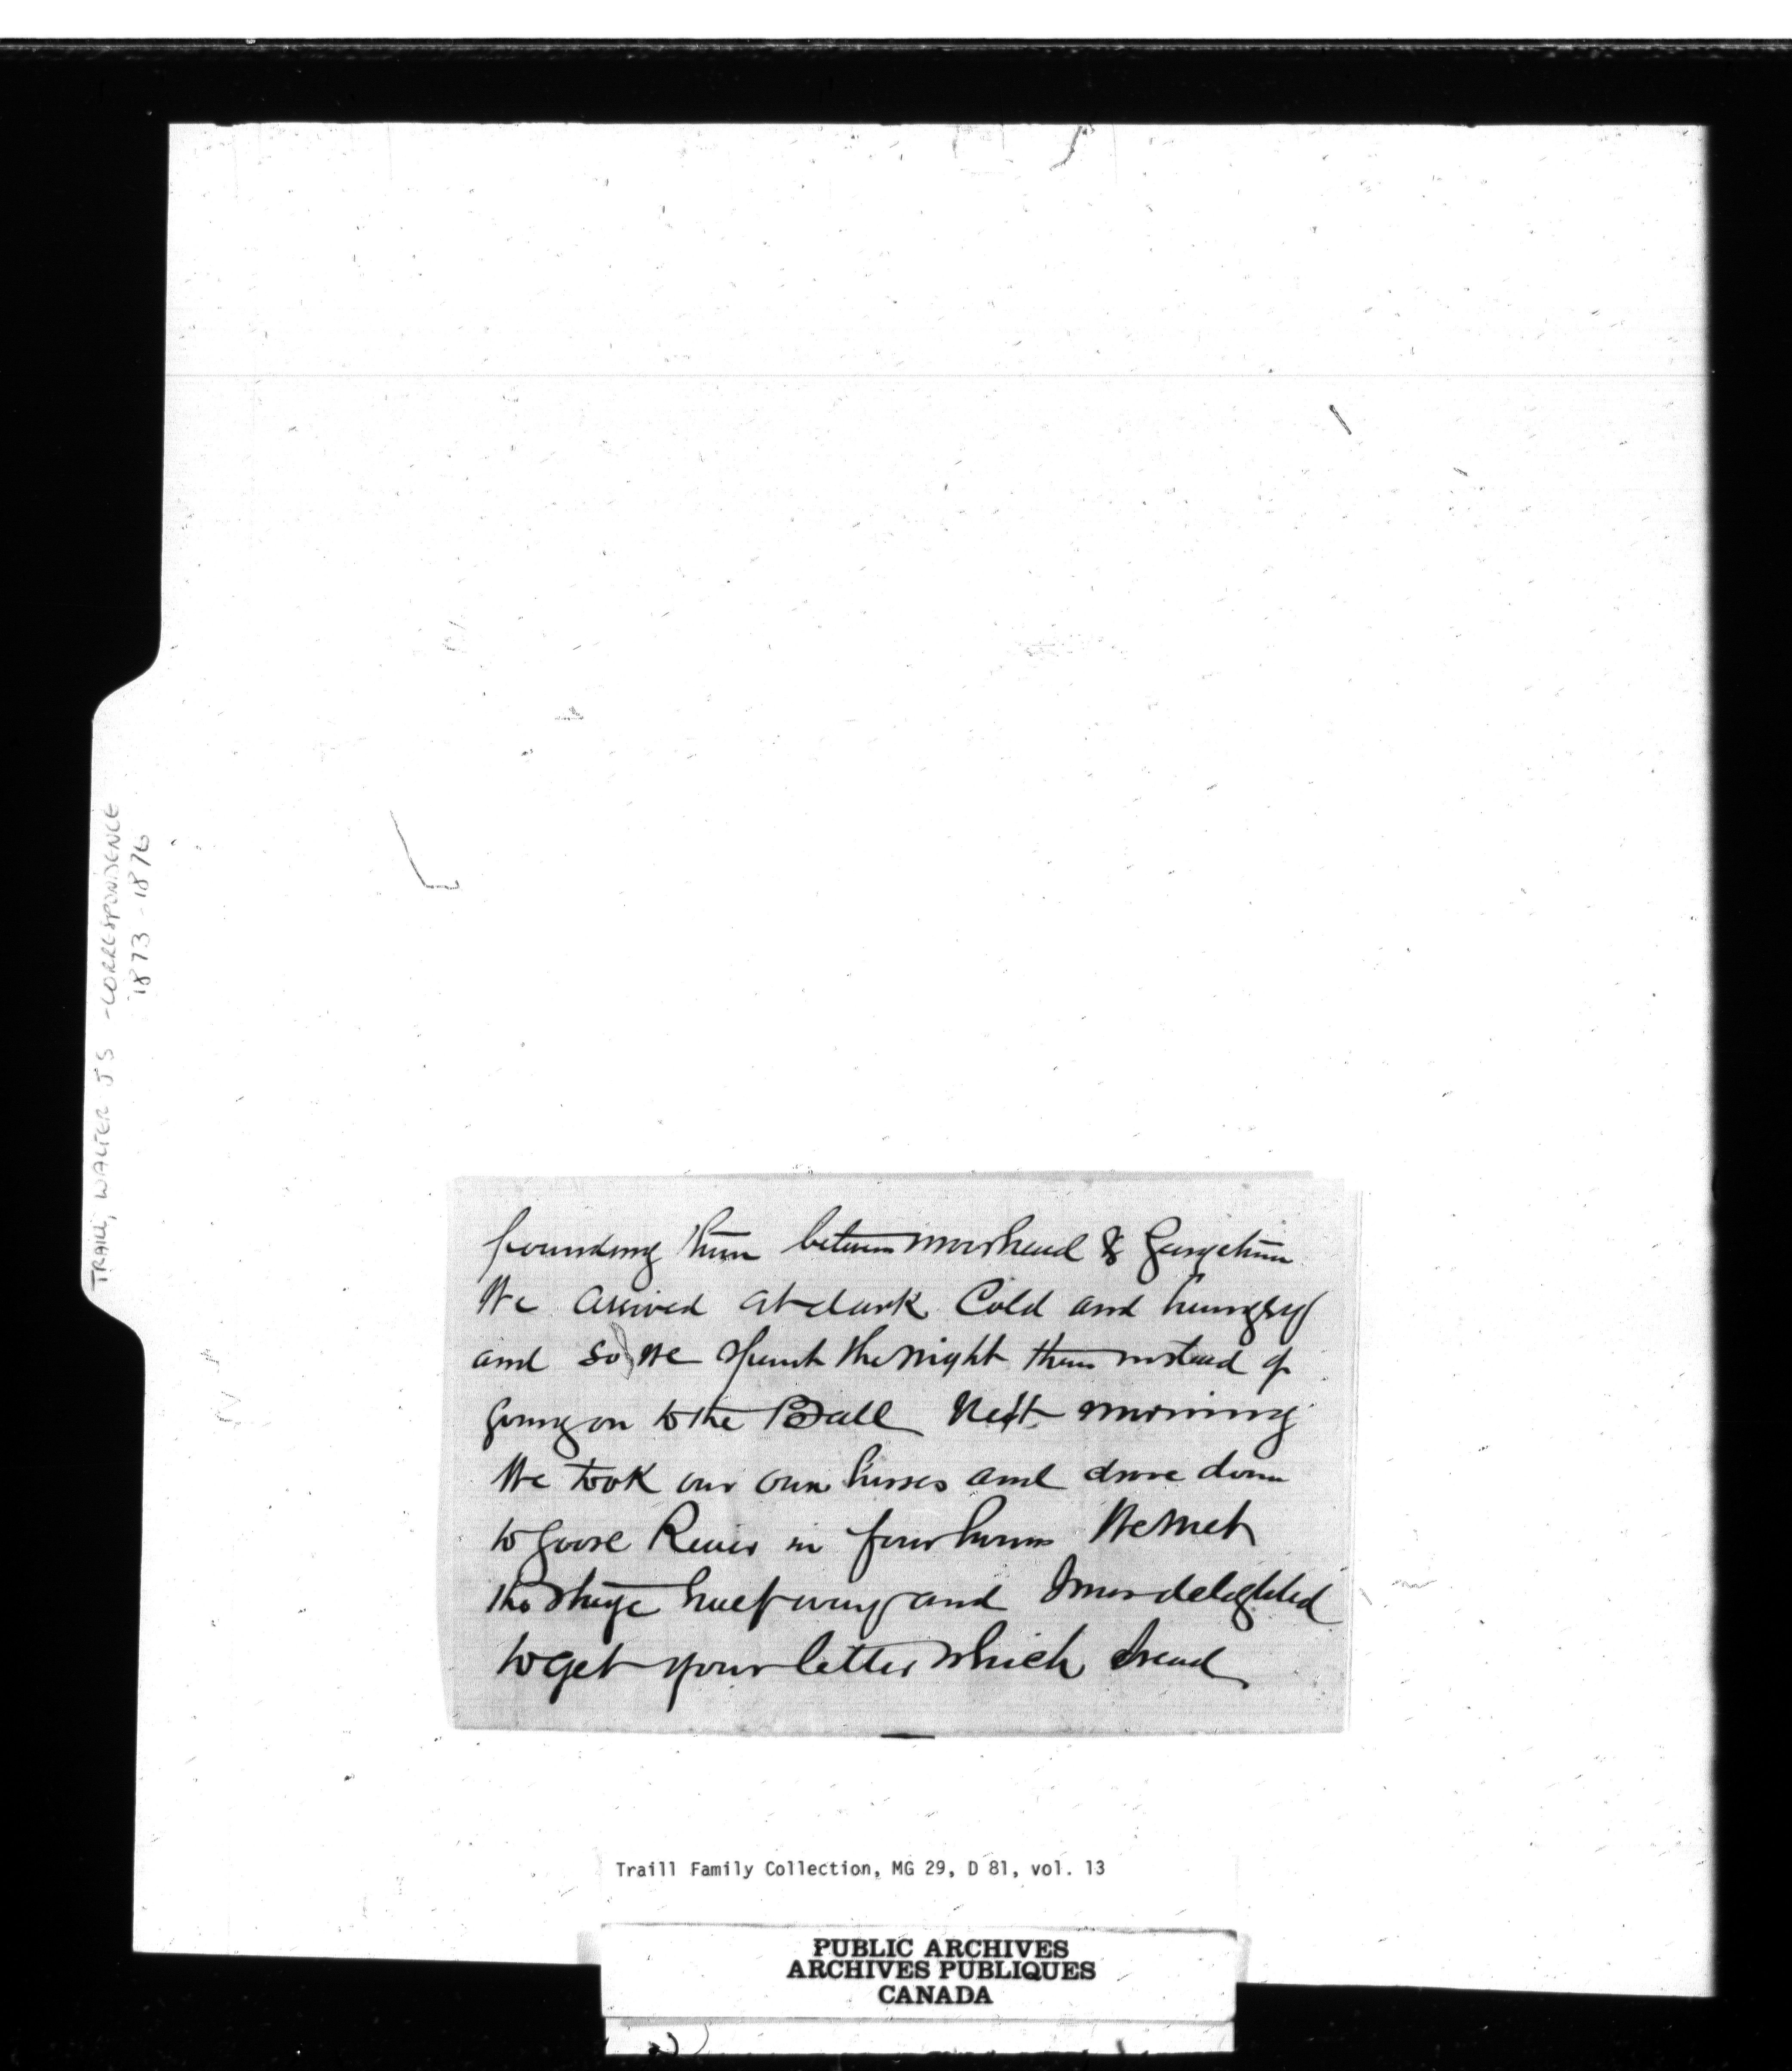 TRAILL, WALTER JS - CORRESPONDENCE
1873-1876
between Moorhead & Georgetown
We arrived at dark Cold and hungry
and so we spent the night there instead of
going on to the Ball Next morning
We took our own horses and drove down
to Goose River in four hours We met
the stage half way and I was delighted
to get your letter which I read
Traill Family Collection, MG 29, D 81, vol. 13
PUBLIC ARCHIVES
ARCHIVES PUBLIQUES
CANADA